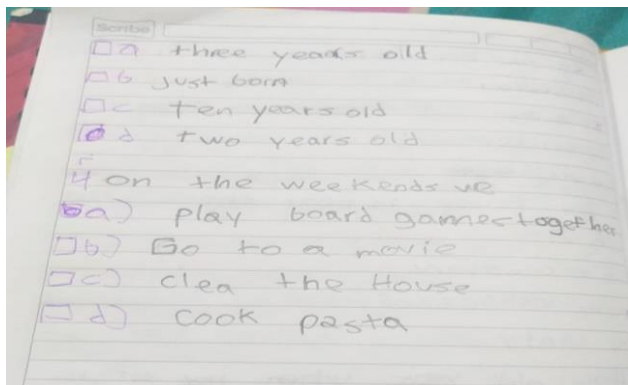 Scribe
a three years old
b just born
c ten years old
d two years old
4 on the weekends we
a) play board games together
b) Go to a movie
c) clea the House
d) cook pasta